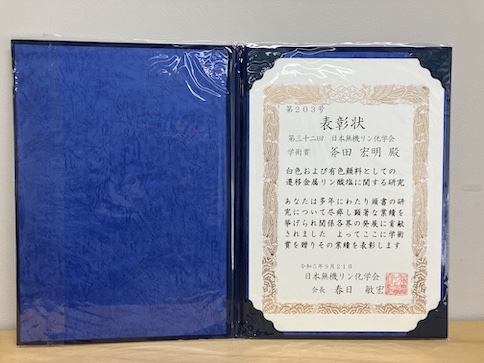 第203号
表彰状
第三十二回 日本無機リン化学会
学術賞 斧田 宏明 殿
白色および有色顔料としての
遷移金属リン酸塩に関する研究
あなたは多年にわたり頭書の研
究について尽瘁し顕著な業績を
挙げられ関係各界の発展に貢献
されました よってここに学術
賞を贈りその業績を表彰します
令和5年9月21日
日本無機リン化学会
会長 春日 敏宏